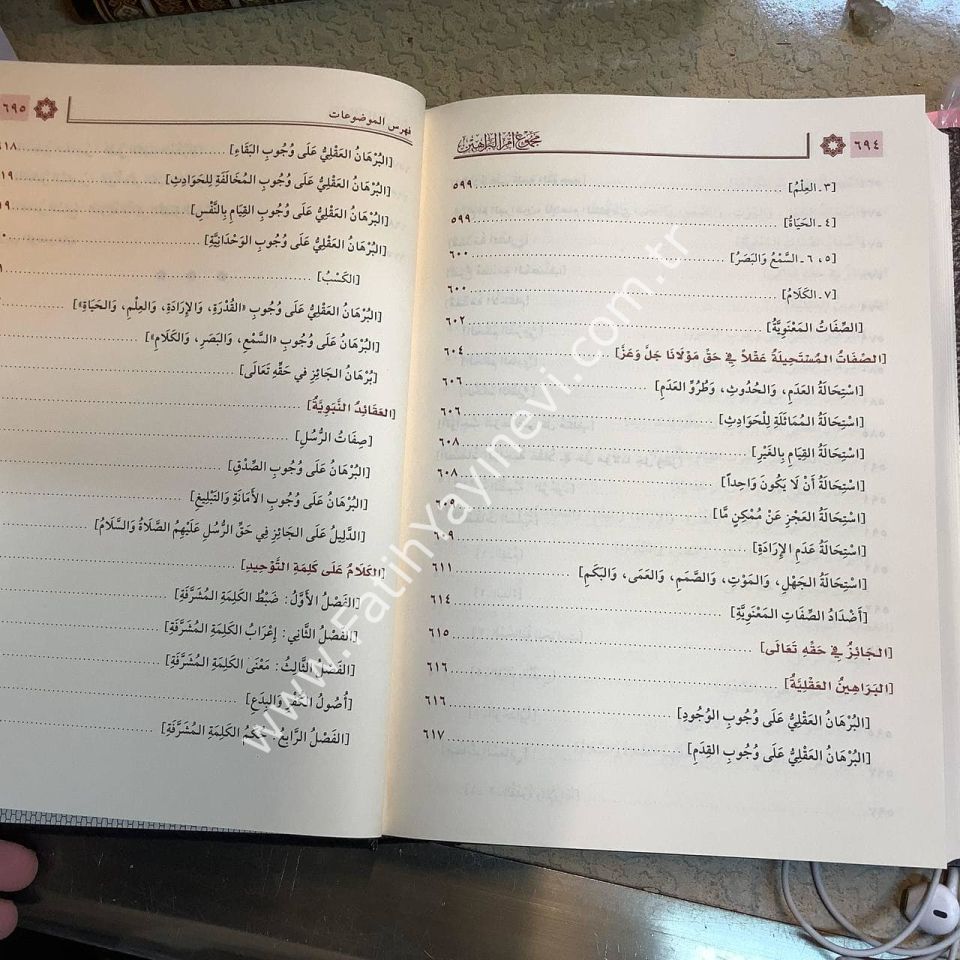 ٦٩٤
مجموع أم البراهين
[٣ـ العِلْمُ] ٥٩٩
[٤ـ الحَيَاةُ] ٥٩٩
[٥، ٦ـ السَّمْعُ وَالبَصَرُ] ٦٠٠
[٧ـ الكَلَامُ] ٦٠٠
[الصِّفَاتُ المَعْنَوِيَّةُ] ٦٠٢
[الصِّفَاتُ المُسْتَحِيلَةُ عَقْلاً فِي حَقِّ مَوْلَانَا جَلَّ وَعَزَّ] ٦٠٤
[اسْتِحَالَةُ العَدَمِ، وَالحُدُوثِ، وَطُرُوِّ العَدَمِ] ٦٠٦
[اسْتِحَالَةُ المُمَاثَلَةِ لِلْحَوَادِثِ] ٦٠٦
[اسْتِحَالَةُ القِيَامِ بِالغَيْرِ] ٦٠٨
[اسْتِحَالَةُ أَنْ لَا يَكُونَ وَاحِداً] ٦٠٨
[اسْتِحَالَةُ العَجْزِ عَنْ مُمْكِنٍ مَّا] ٦٠٥
[اسْتِحَالَةُ عَدَمِ الإِرَادَةِ] ٦٠٩
[اسْتِحَالَةُ الجَهْلِ، وَالمَوْتِ، وَالصَّمَمِ، وَالعَمَى، وَالبَكَمِ] ٦١١
[أَضْدَادُ الصِّفَاتِ المَعْنَوِيَّةِ] ٦١٤
[الجَائِزُ فِي حَقِّهِ تَعَالَى] ٦١٥
[البَرَاهِينُ العَقْلِيَّةُ] ٦١٦
[البُرْهَانُ العَقْلِيُّ عَلَى وُجُوبِ الوُجُودِ] ٦١٦
[البُرْهَانُ العَقْلِيُّ عَلَى وُجُوبِ القِدَمِ] ٦١٧
فهرس الموضوعات
٦٩٥
[البُرْهَانُ العَقْلِيُّ عَلَى وُجُوبِ البَقَاءِ] ٦١٨
[البُرْهَانُ العَقْلِيُّ عَلَى وُجُوبِ المُخَالَفَةِ لِلحَوَادِثِ] ١٩
[البُرْهَانُ العَقْلِيُّ عَلَى وُجُوبِ القِيَامِ بِالنَّفْسِ] ١٩
[البُرْهَانُ العَقْلِيُّ عَلَى وُجُوبِ الوَحْدَانِيَّةِ]
[الكَسْبُ]
[البُرْهَانُ العَقْلِيُّ عَلَى وُجُوبِ «القُدْرَةِ، وَالإِرَادَةِ، وَالعِلْمِ، وَالحَيَاةِ»]
[البُرْهَانُ عَلَى وُجُوبِ «السَّمْعِ، وَالبَصَرِ، وَالكَلَامِ»]
[بُرْهَانُ الجَائِزِ في حَقِّهِ تَعَالَى]
[العَقَائِدُ النَّبَوِيَّةُ]
[صِفَاتُ الرُّسُلِ]
[البُرْهَانُ عَلَى وُجُوبِ الصِّدْقِ]
[البُرْهَانُ عَلَى وُجُوبِ الأَمَانَةِ وَالتَّبْلِيغِ]
[الدَّلِيلُ عَلَى الجَائِزِ فِي حَقِّ الرُّسُلِ عَلَيْهِمُ الصَّلَاةُ وَالسَّلَامُ]
[الكَلَامُ عَلَى كَلِمَةِ التَّوْحِيدِ]
[الفَصْلُ الأَوَّلُ: ضَبْطُ الكَلِمَةِ المُشَرَّفَةِ]
[الفَصْلُ الثَّانِي: إِعْرَابُ الكَلِمَةِ المُشَرَّفَةِ]
[الفَصْلُ الثَّالِثُ: مَعْنَى الكَلِمَةِ المُشَرَّفَةِ]
[أُصُولُ الكُفْرِ وَالبِدَعِ]
[الفَصْلُ الرَّابِعُ: حُكْمُ الكَلِمَةِ المُشَرَّفَةِ]
www.FatihYayinevi.com.tr